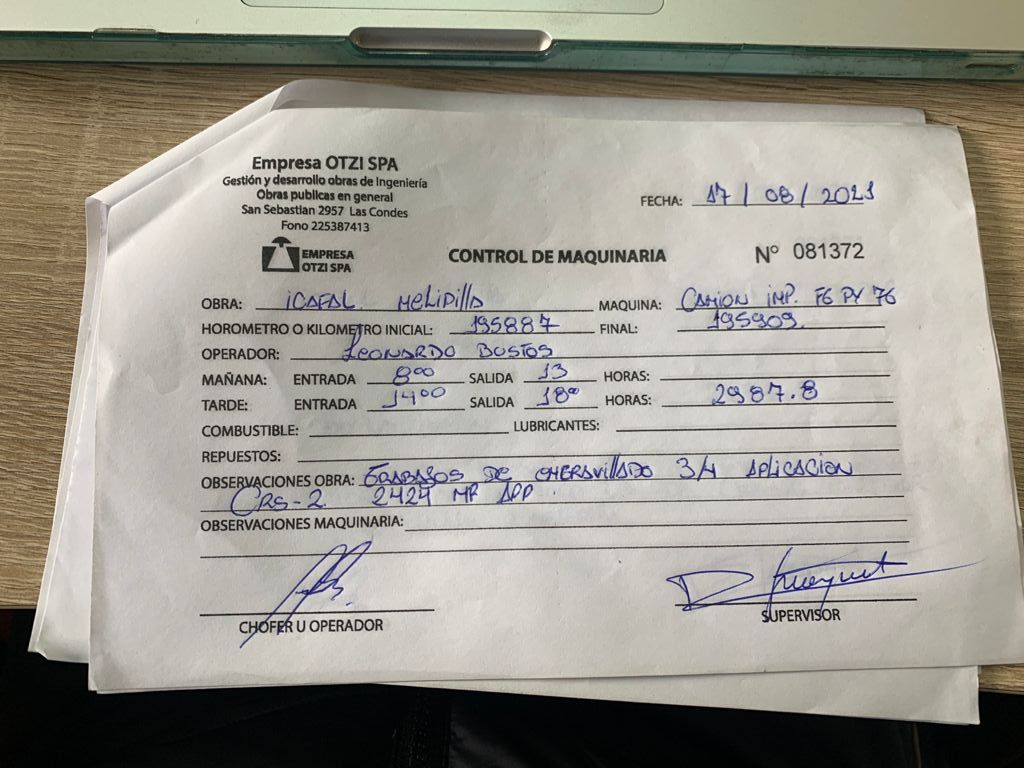 Empresa OTZI SPA
Gestión y desarrollo obras de Ingeniería
Obras publicas en general
San Sebastian 2957 Las Condes
Fono 225387413
FECHA: 17 / 08 / 2021
EMPRESA
OTZI SPA
CONTROL DE MAQUINARIA
N° 081372
OBRA: iCAFAL MELIPILLA MAQUINA: CAMION IMP. FG PY 76
HOROMETRO O KILOMETRO INICIAL: 195887 FINAL: 195909.
OPERADOR: LEONARDO BUSTOS
MAÑANA: ENTRADA 800 SALIDA 13 HORAS:
TARDE: ENTRADA 1400 SALIDA 1800 HORAS: 2987.8
COMBUSTIBLE: LUBRICANTES:
REPUESTOS:
OBSERVACIONES OBRA: TRABAJOS DE 3/4 APLICACION
CRS-2 2424 APP.
OBSERVACIONES MAQUINARIA:
CHOFER U OPERADOR
SUPERVISOR